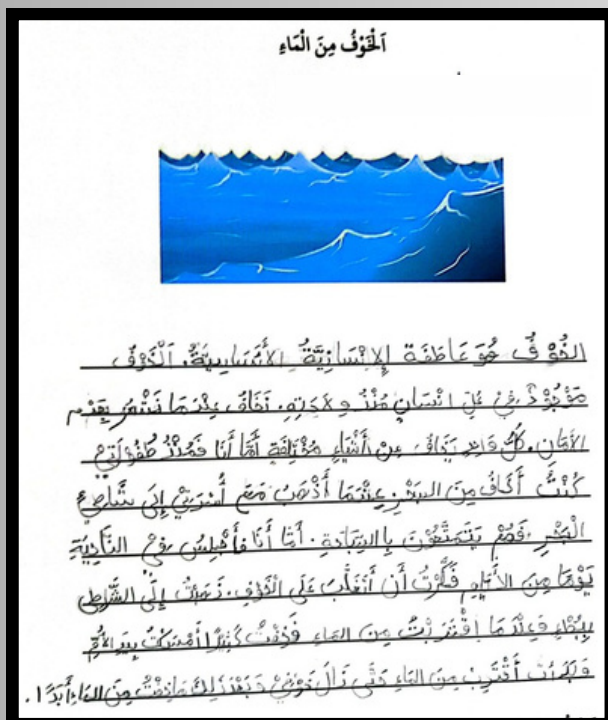 اَلْخَوْفُ مِنَ الْمَاءِ
الخُوْفُ هُوَ عَاطَفَة إِلإنْسَانِيَّةُ الأَسَاسِيَّةُ. اَلْخَوْفُ
مَوْجُوْدٌ فِيْ كُلِّ انْسَانٍ مُنْذُ وِلاَدَتِهِ. نَخَافُ عِنْدَمَا نَشْعُرُ بِعَدَمِ
الأمَانِ. كُلُّ وَاحِدٍ يَخَافُ مِنْ أَشْيَاءٍ مُخْتَلِفَةٍ أَمَّا أَنَا فَمُنْذُ طُفُوْلَتِيْ
كُنْتُ أَخَافُ مِنَ البَحْرِ. عِنْدَمَا أَذْهَبُ مَعَ أُسْرَتِيْ إِلَى شَاطِئِ
الْبَحْرِ، فَهُمْ يَتَمَتَّعُوْنَ بِالسِّبَاحَةِ. أَمَّا أَنَا فَأَجْلِسُ فِيْ النَّاحِيَةِ
يَوْمًا مِنَ الأَيَّامِ فَكَّرْتُ أَن أَتَغَلَّبَ عَلَى الْخَوْفِ. ذَهَبْتُ إِلَى الشَّاطِئِ
بِبُطْءٍ وَعِنْدَمَا اِقْتَرَبْتُ مِنَ المَاءِ خِفْتُ كَثِيْرًا أَمْسَكْتُ بِيَدِ الأُمِّ
وَبَدَأْتُ أَقْتَرِبُ مِنَ المَاءِ حَتَّى زَالَ خَوْفِيْ وَبَعْدَ ذَلِكَ مَاخِفْتُ مِنَ المَاءِ أَبَدًا.